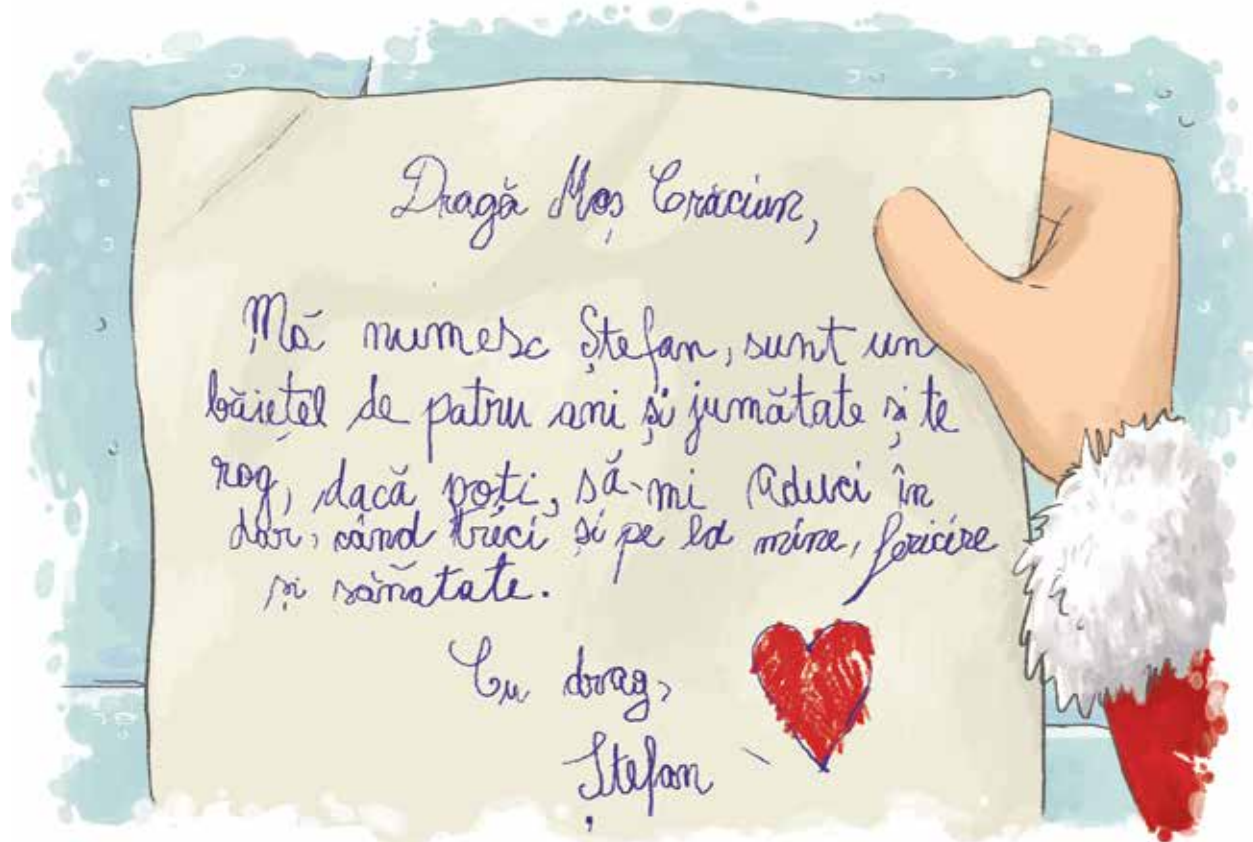 Dragă Moș Crăciun,
Mă numesc Ștefan, sunt un
băiețel de patru ani și jumătate și te
rog, dacă poți, să-mi aduci în
dar, când treci și pe la mine, fericire
și sănătate.
Cu drag,
Ștefan